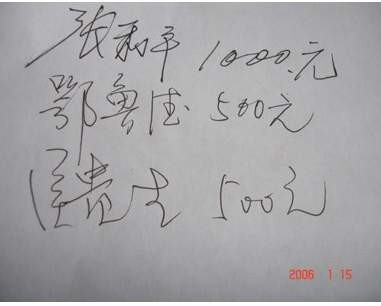 张利平 1000.元
鄂鲁浩 500元
医贵生 500元
2006 1 15